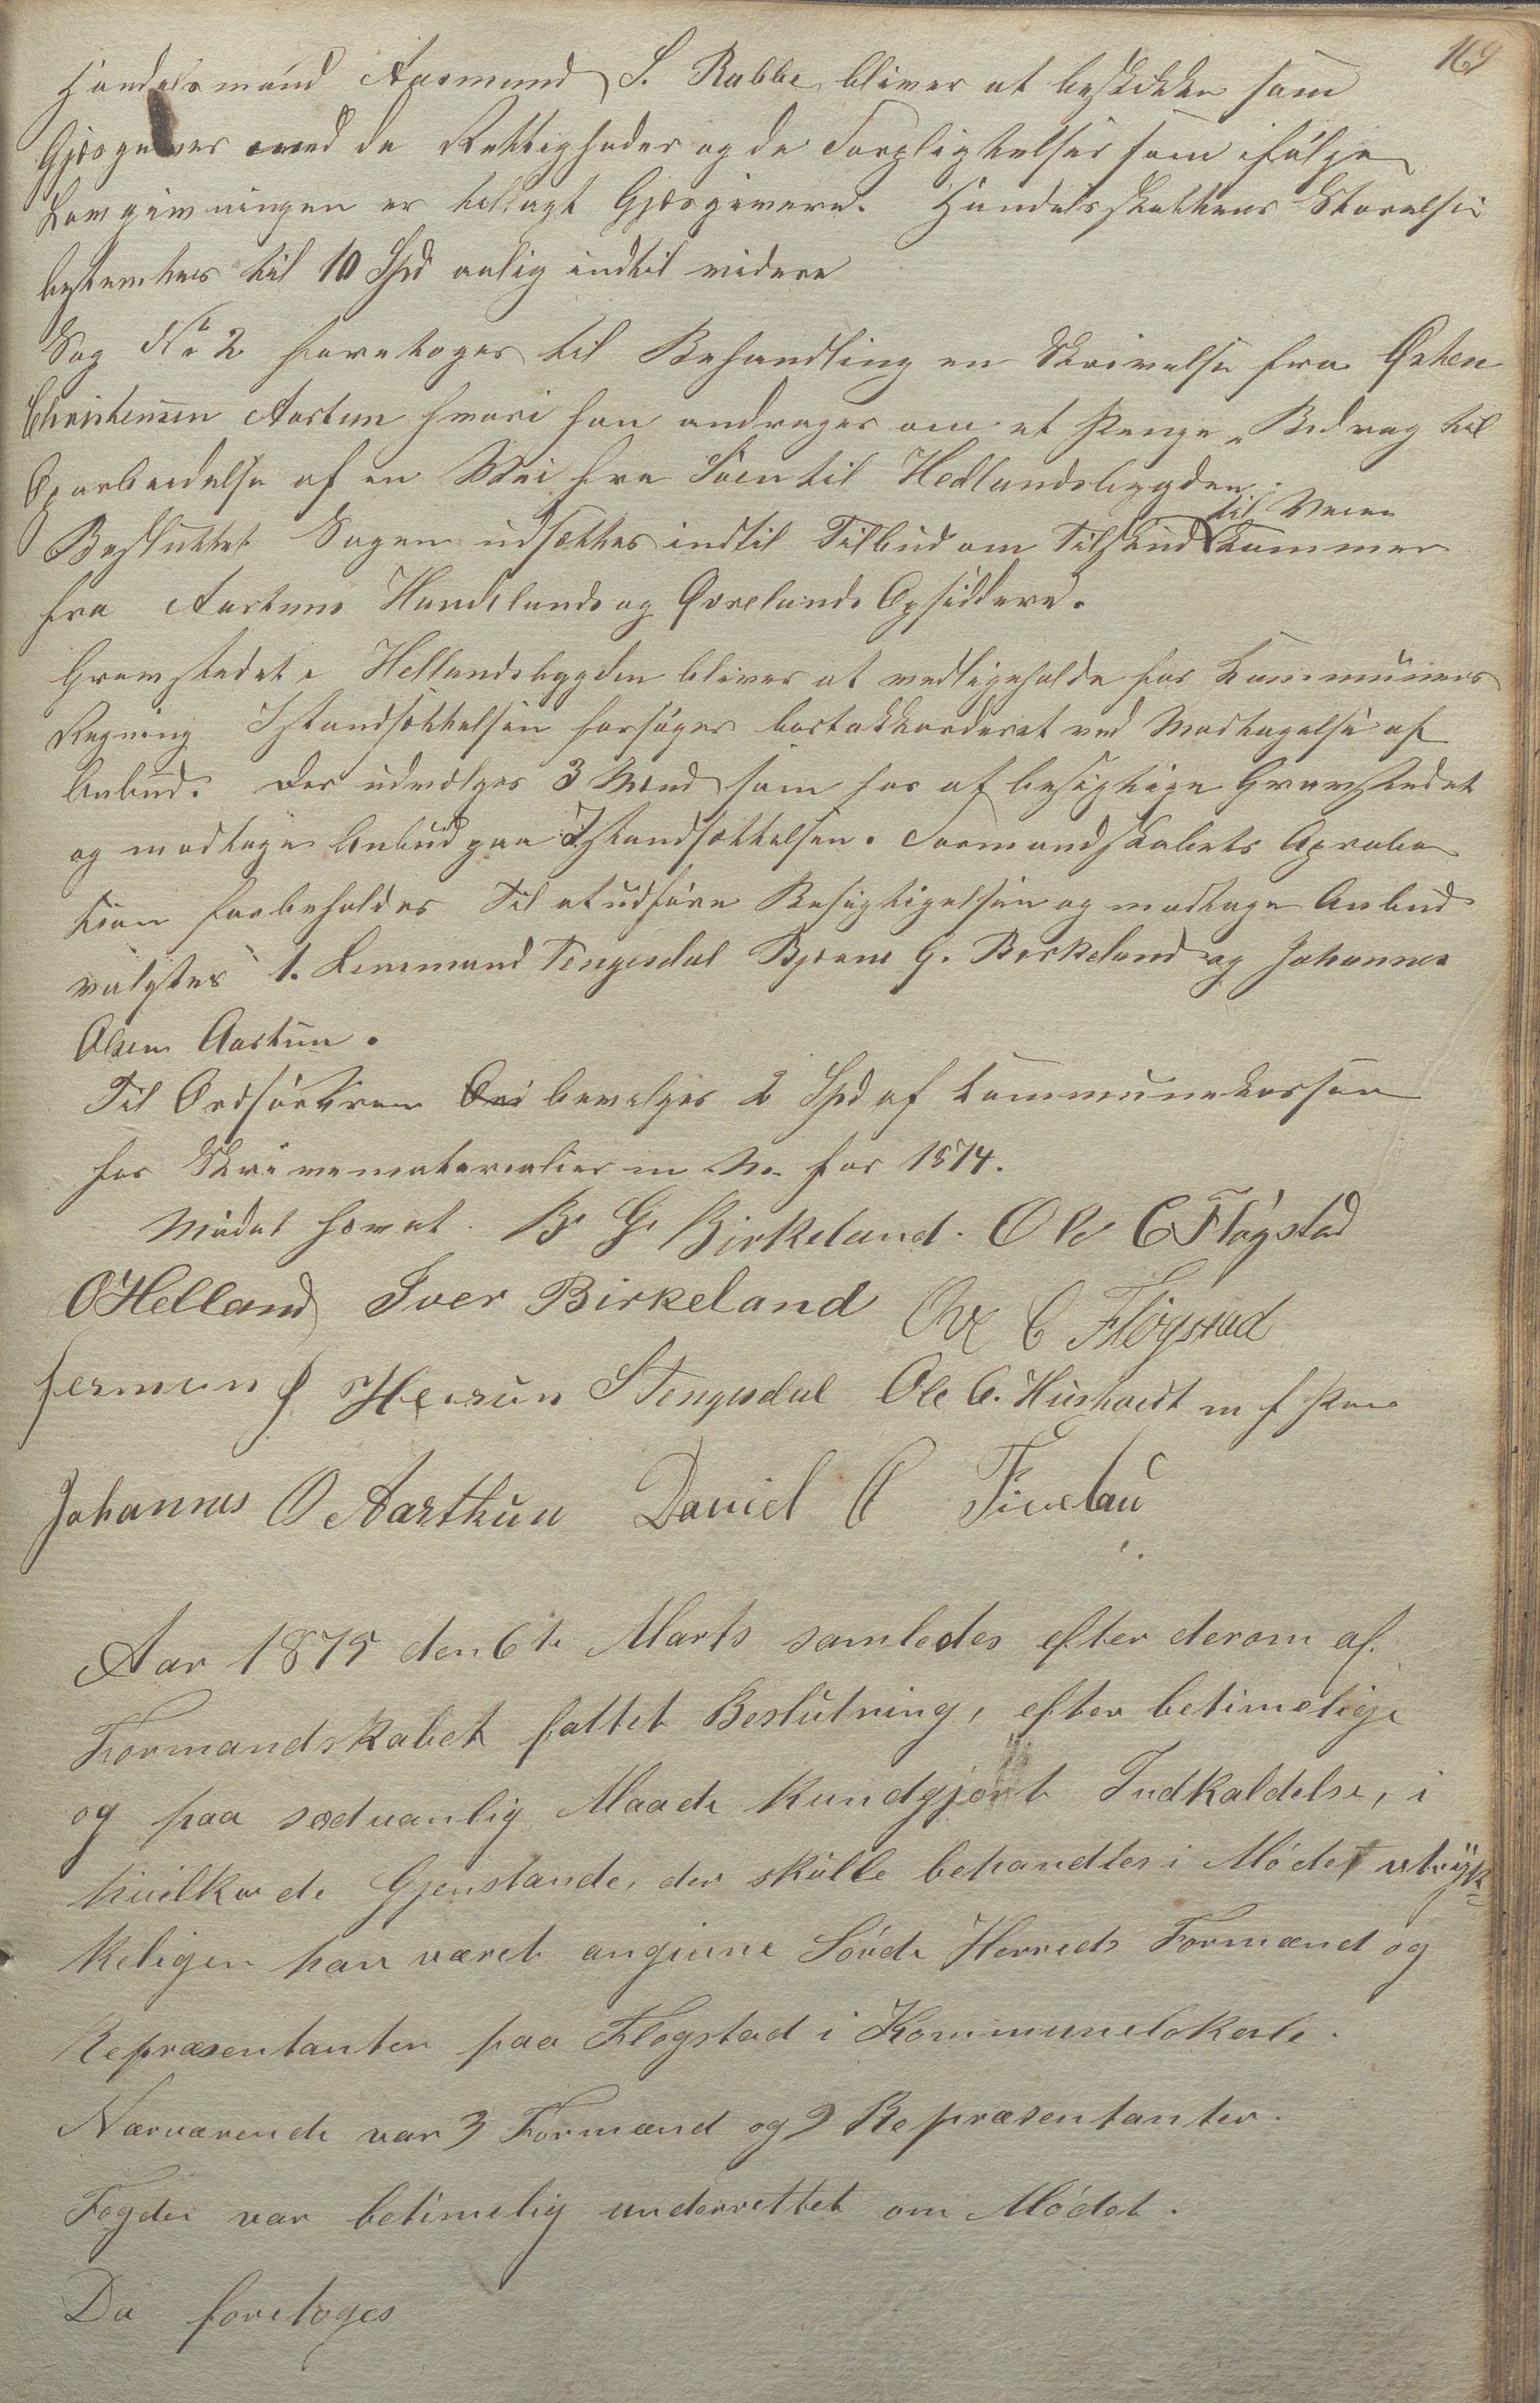 169
Handelsmand Aasmund S. Rabbe bliver at beskikke som
Gjæsgiver med de Rettigheder og de Forpligtelser som ifølge
Lovgivningen er tillagt Gjæsgivere. Handelsskattens Størelse
bestemtes til 10 Spd aarlig indtil videre
Sag No 2 foretoges til Behandling en Skrivelse fra Østen
Christensen Aartun hvori han andrager om et Penge Bidrag til
Oparbeidelse af en Wei fra Søen til Hedlandsbygden.
til Veien
Besluttet Sagen udsættes indtil Tilbud om Tilskud kommer
fra Aartuns Handelands og Øvrelands Opsiddere.
Gravstedet i Hellandsbygden bliver at vedligeholde for Kommunens
Regning Istandsættelsen forsøges bortakkorderet ved Modtagelse af
Anbud. Der udvælges 3 Mænd som har at besigtige Gravstedet
og modtage Anbud paa Istandsættelsen. Formandskabets Aproba
tion forbeholdes Til at udføre Besigtigelsen og modtage Anbud
valgtes 1. Lensmand Tengesdal Bjørne G. Birkeland og Johannes
Olsen Aartun.
Til Ordføreren bevilges 2 Spd af Kommunekassen
for Skrivematerialier m. M. for 1874.
Mødet hævet. B. G. Birkeland. Ole C Fløgstad
O Helland Iver Birkeland Ole C Fløgstad
S Tengesdal Ole C. Hushoidt m f Pen
Johannes O Aarthun Daniel
Aar 1875 den 6te Marts samledes efter derom af
Formandskabet fattet Beslutning, efter betimelige
og paa sædvanlig Maade kundgjort Indkaldelse, i
hvilken de Gjenstande, der skulle behandles i Mødet utryk=
keligen har været angivne Søvde Herreds Formænd og
Repræsentanter paa Fløgstad i Kommunelokale.
Nærværende var 3 Formænd og 9 Repræsentanter.
Fogden var betimelig underrettet om Mødet.
Da foretoges